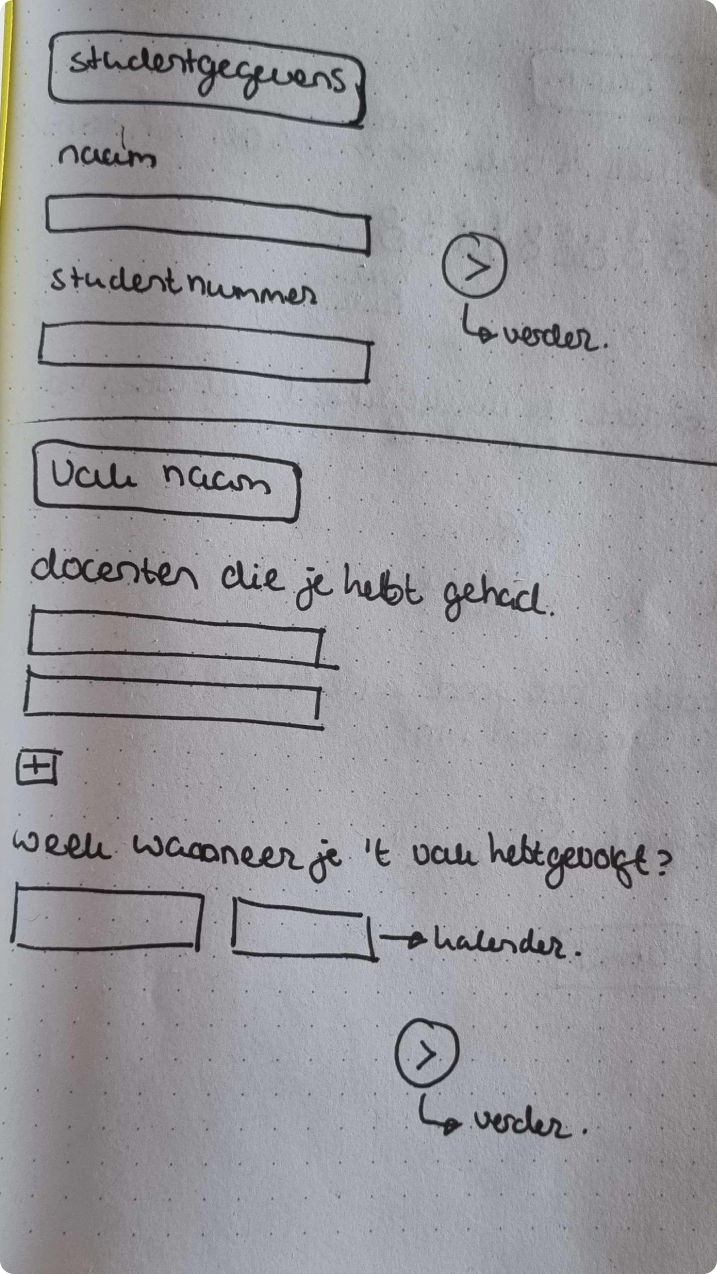 studentgegevens
naam
studentnummer
>
verder.
vak naam
docenten die je hebt gehad.
+
week wanneer je 't vak hebt gevolgt?
kalender.
>
verder.